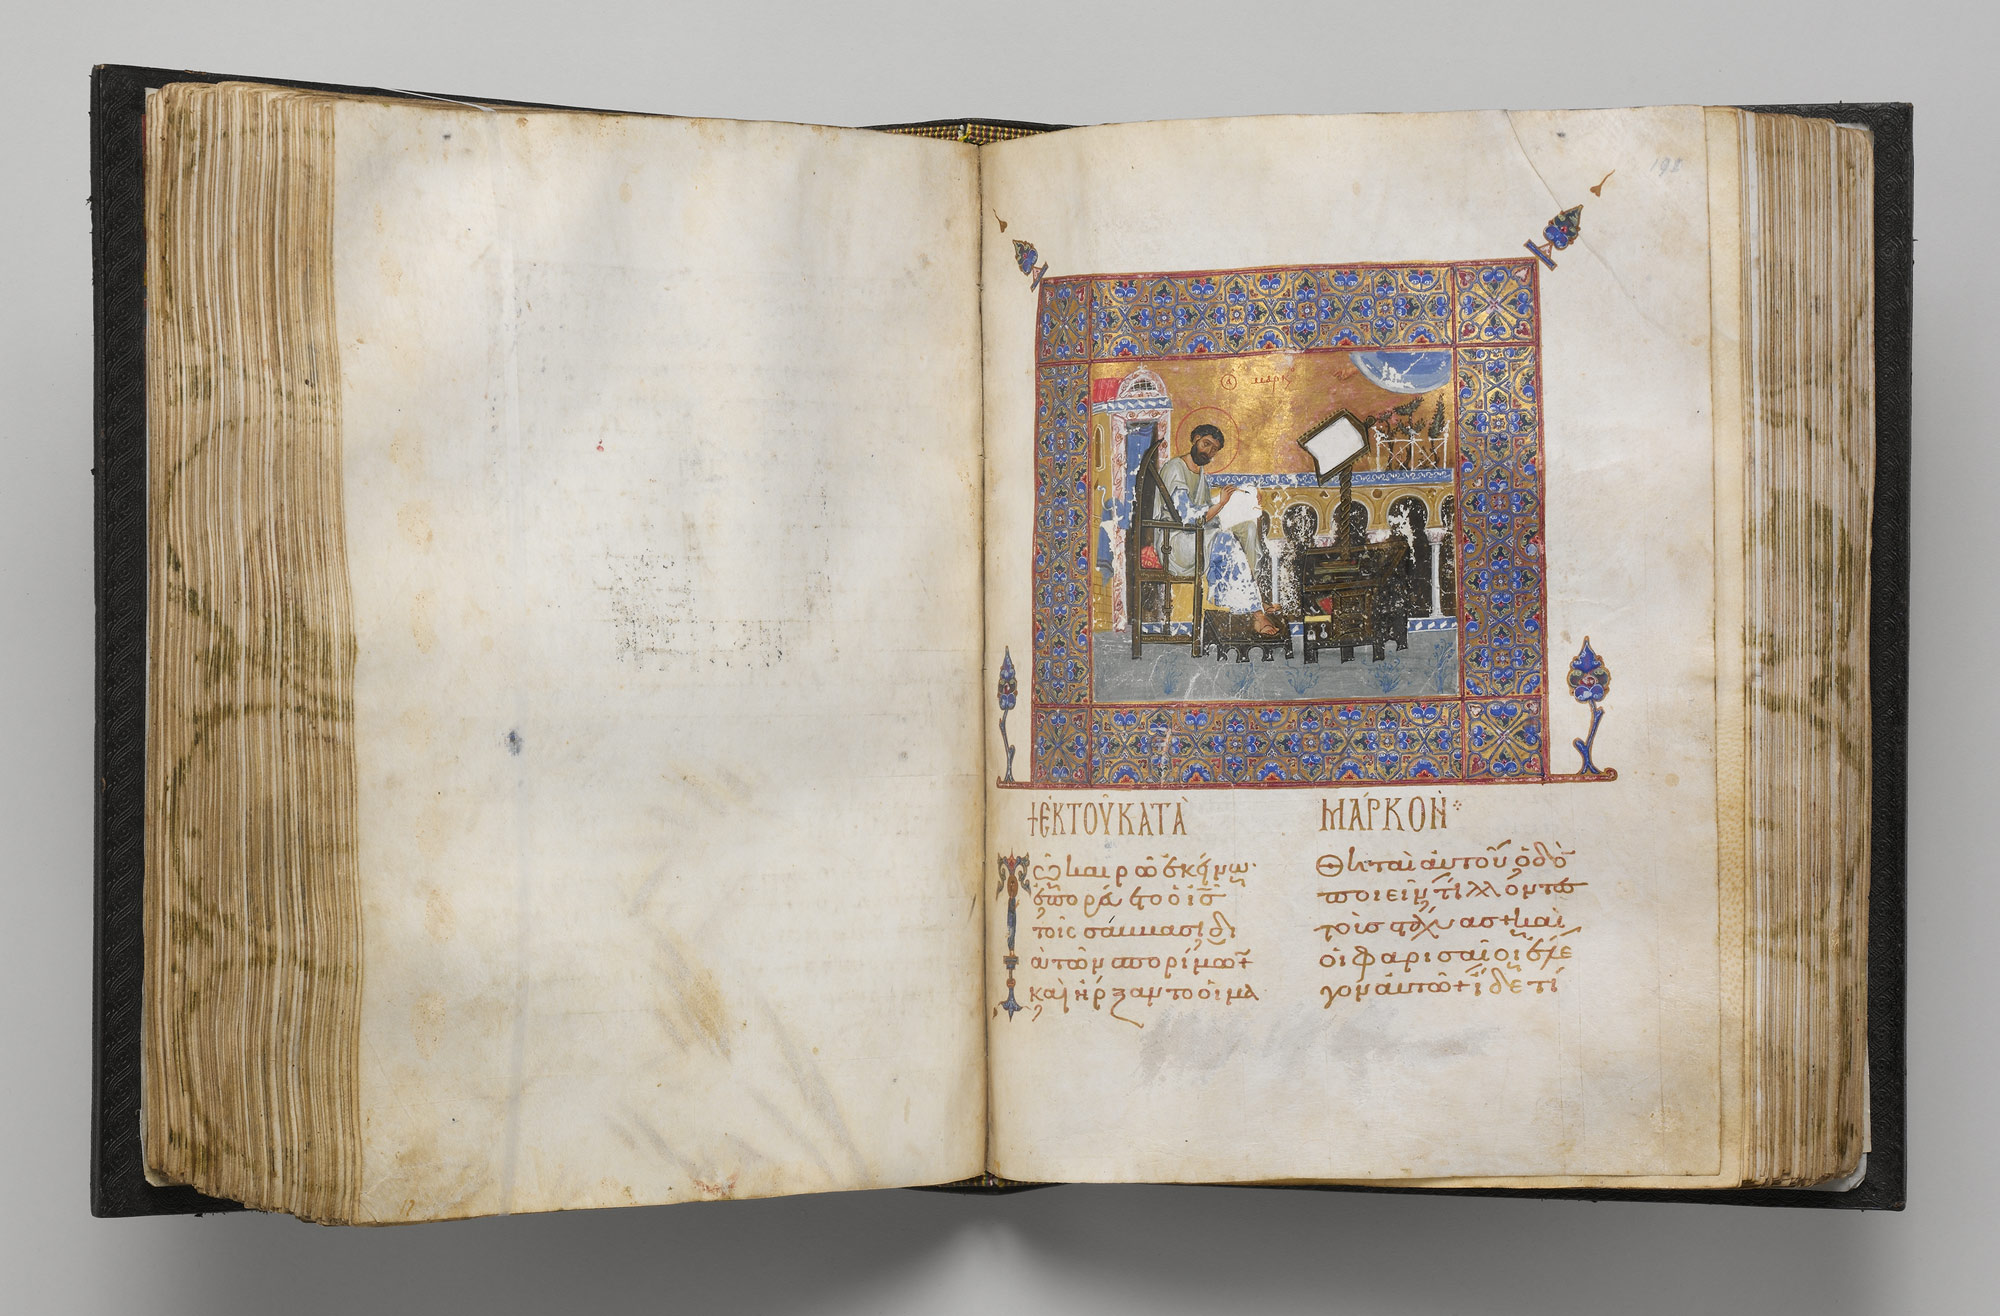 Ⓐ ΜΑΡΚ
+ ἐκ τοῦ κατὰ Μάρκον
Τῶ καιρῶ ἐκείνω·
ἐπορεύετο ὁ ις
τοῖς σάββασι δι
ὰ τῶν σπορίμων
καὶ ἤρξαντο οἱ μα
θηταὶ αὐτοῦ ὁδὸ
ποιεῖν τίλλοντες
τοὺς στάχυας + καὶ
οἱ φαρισαῖοι ἔλε
γον αὐτῶ + ἴδε τί